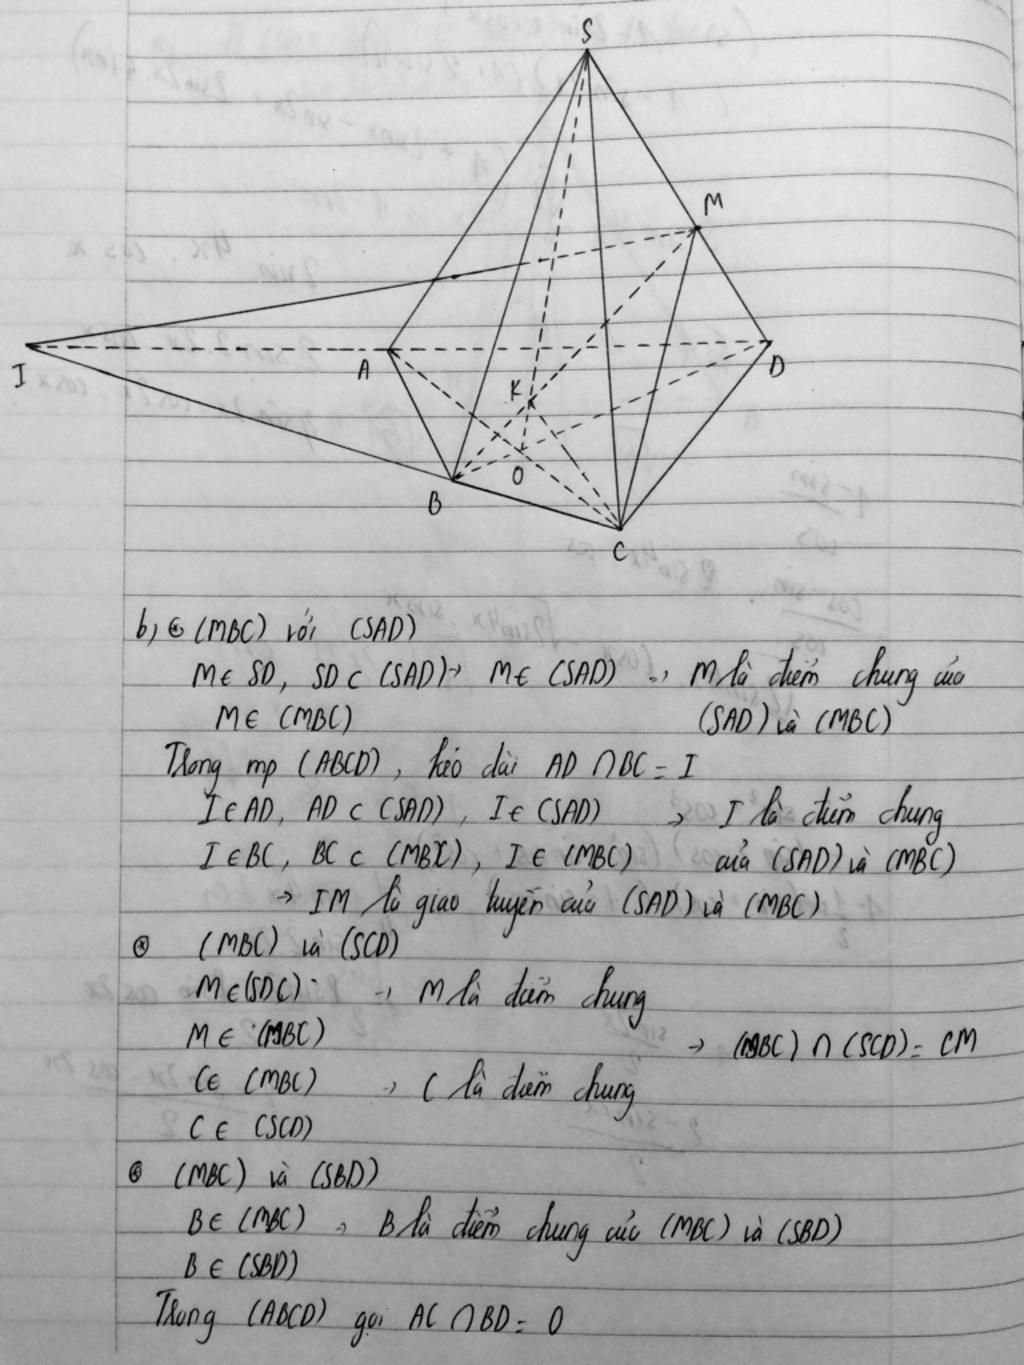 S
M
I
A
D
K
O
B
C
b, (MBC) với (SAD)
M ∈ SD, SD ⊂ (SAD) → M ∈ (SAD) → M là điểm chung của
M ∈ (MBC) (SAD) và (MBC)
Trong mp (ABCD), kéo dài AD ∩ BC = I
I ∈ AD, AD ⊂ (SAD), I ∈ (SAD) → I là điểm chung
I ∈ BC, BC ⊂ (MBC), I ∈ (MBC) của (SAD) và (MBC)
→ IM là giao tuyến của (SAD) và (MBC)
(MBC) và (SCD)
M ∈ (SDC) → M là điểm chung
M ∈ (MBC) → (MBC) ∩ (SCD) = CM
C ∈ (MBC) → C là điểm chung
C ∈ (SCD)
(MBC) và (SBD)
B ∈ (MBC) → B là điểm chung của (MBC) và (SBD)
B ∈ (SBD)
Trong (ABCD) gọi AC ∩ BD = O